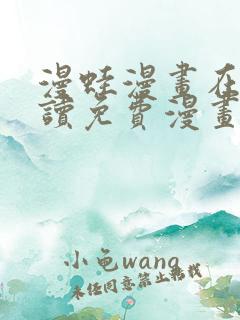 漫蛙漫畫在
讀免費漫畫
小龟wang
未经同意禁止转载